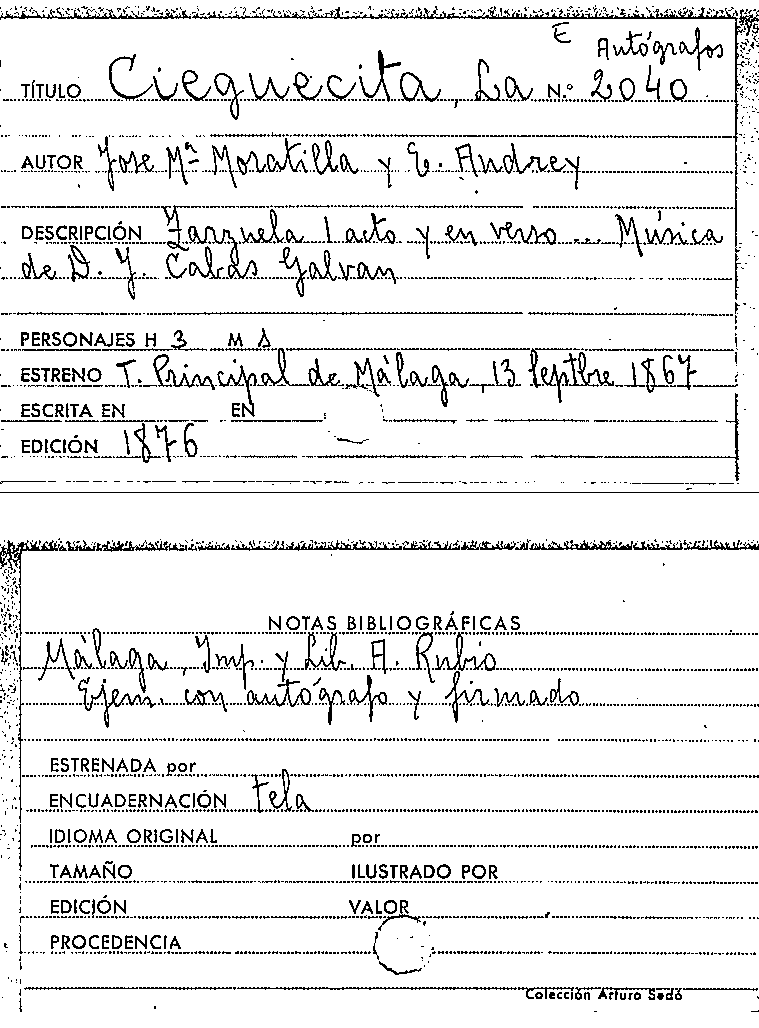 E Autógrafos
TÍTULO Cieguecita, La N.º 2040
AUTOR Jose Mª Moratilla y E. Andrey
DESCRIPCIÓN Zarzuela 1 acto y en verso ... Música
de D. J. Cabas Galvan
PERSONAJES H 3 M
ESTRENO T. Principal de Málaga, 13 Septbre 1867
ESCRITA EN EN
EDICIÓN 1876
NOTAS BIBLIOGRÁFICAS
Málaga, Imp. y Lib. A. Rubio
Ejem. con autógrafo y firmado
ESTRENADA por
ENCUADERNACIÓN tela
IDIOMA ORIGINAL por
TAMAÑO ILUSTRADO POR
EDICIÓN VALOR
PROCEDENCIA
Colección Arturo Sedó